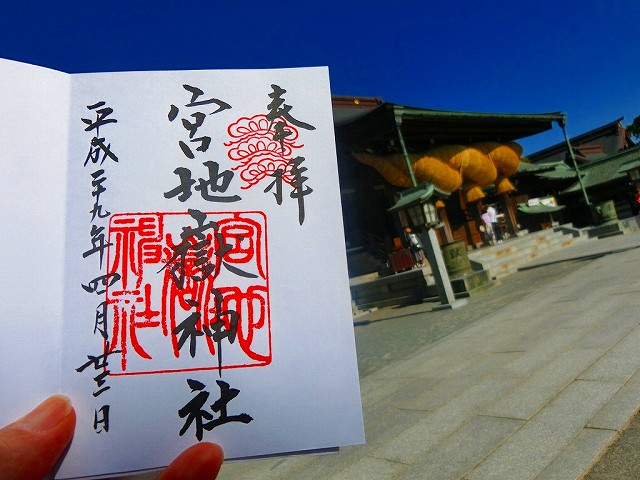 奉拝
宮地嶽神社
平成二十九年四月廿三日
宮地嶽神社